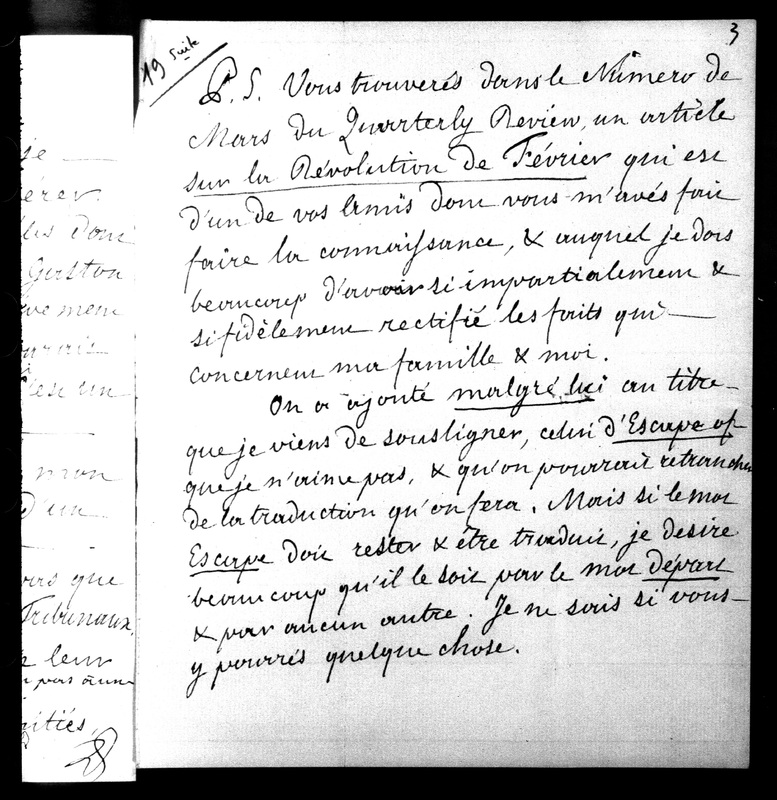 3
19 suite
P. S. Vous trouverés dans le Numero de
Mars du Quarterly Review, un article
sur la Révolution de Février qui est
d'un de vos Amis dont vous m'avés fait
faire la connaissance, & auquel je dois
beaucoup d'avoir si impartialement &
si fidèlement rectifié les faits qui
concernent ma famille & moi.
On a ajouté malgré lui au titre
que je viens de sousligner, celui d'Escape of
que je n'aime pas, & qu'on pourrait retrancher
de la traduction qu'on fera. Mais si le mot
Escape doit rester & être traduit, je desire
beaucoup qu'il le soit par le mot départ
& par aucun autre. Je ne sais si vous
y pourrés quelque chose.
je
érer.
les dont
Gaston
vement
c'est un
mon
d'un
que
Tribunaux.
leur
pas à une